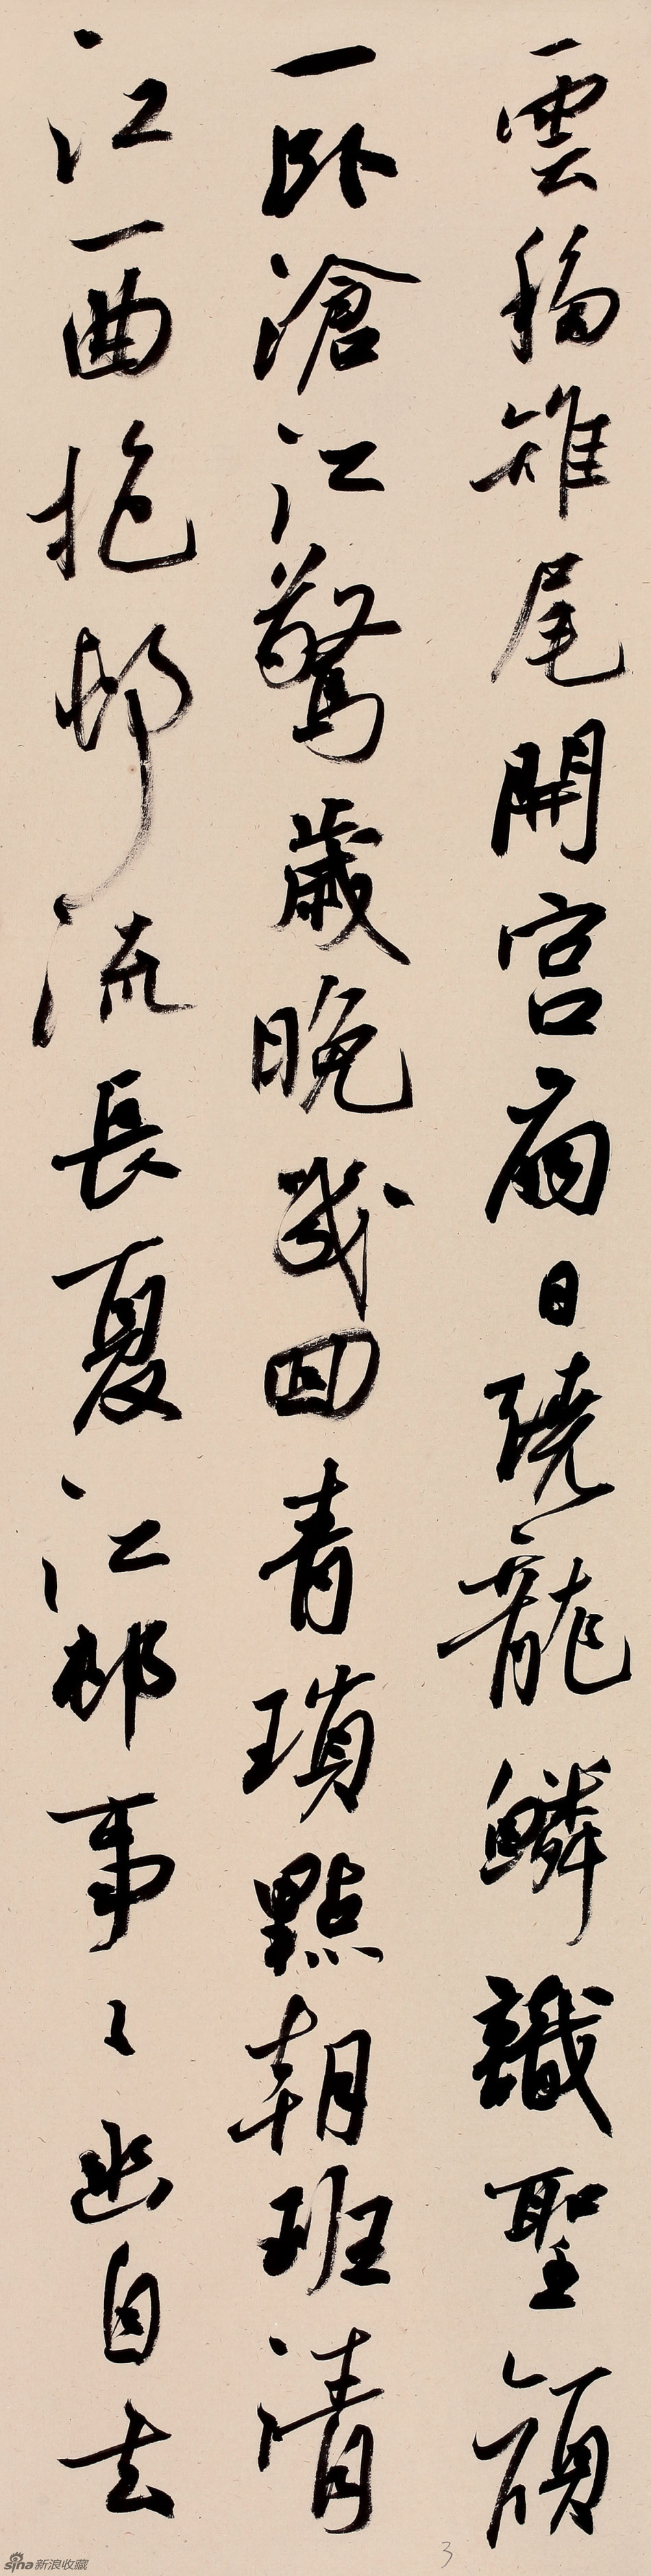 雲移雉尾開宮扇日繞龍鱗識聖顔
一卧滄江驚歲晚幾回青瑣點朝班清
江一曲抱邨流長夏江邨事〻幽自去
3
sina新浪收藏